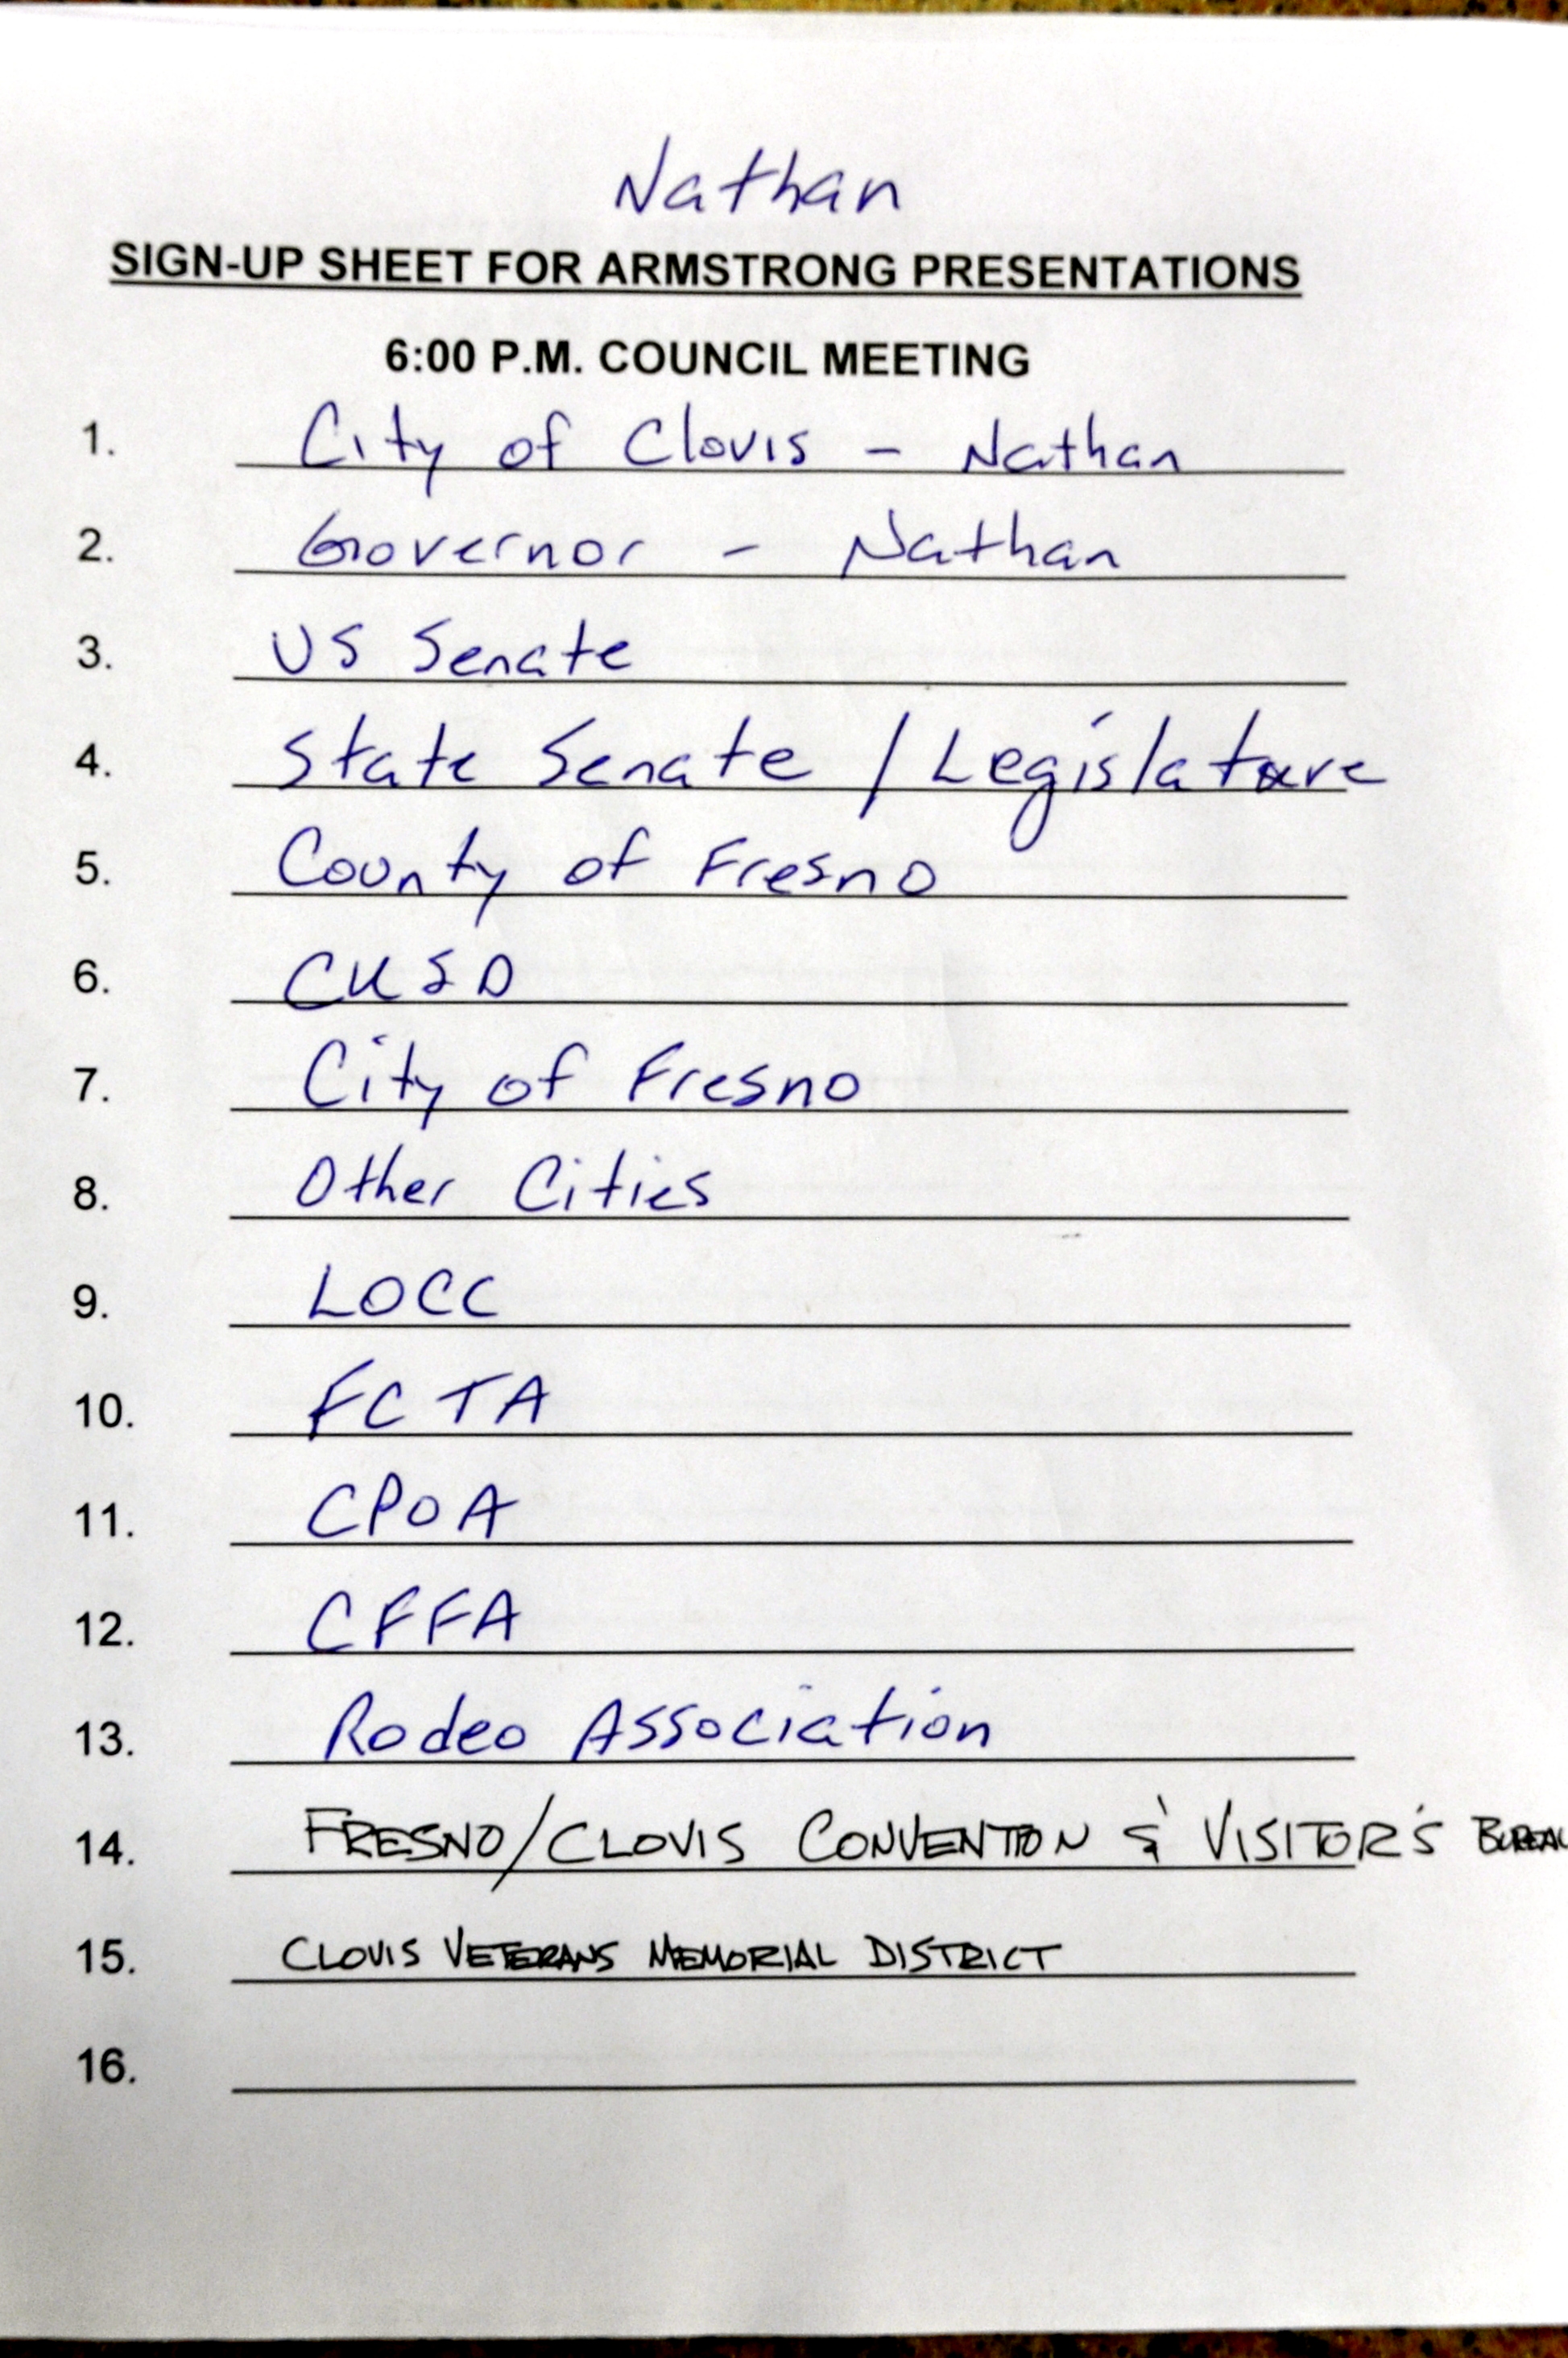 Nathan
SIGN-UP SHEET FOR ARMSTRONG PRESENTATIONS
6:00 P.M. COUNCIL MEETING
1. City of Clovis - Nathan
2. Governor - Nathan
3. US Senate
4. State Senate / Legislature
5. County of Fresno
6. CUSD
7. City of Fresno
8. Other Cities
9. LOCC
10. FCTA
11. CPOA
12. CFFA
13. Rodeo Association
14. FRESNO/CLOVIS CONVENTION & VISITOR'S BUREAU
15. CLOVIS VETERANS MEMORIAL DISTRICT
16.